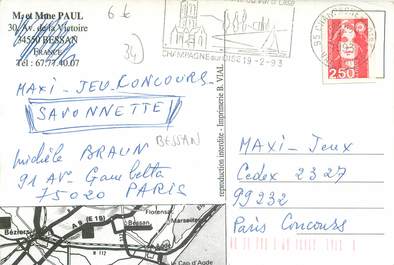 M. et Mme PAUL
30, Av. de la Victoire
34550 BESSAN
FRANCE
Tél : 67.77.40.07
6 €
34
CHAMPAGNE sur OISE 19-2-93
2,50
MAXI - JEU CONCOURS
SAVONNETTE
BESSAN
Michèle BRAUN
91 AVe Gambetta
75020 PARIS
reproduction interdite - Imprimerie B. VIAL
MAXI - Jeux
Cedex 2327
99232
Paris Concours
Béziers
A 9 (E 15)
Florensac
Bessan
Marseillan
N 112
le Cap d'Agde